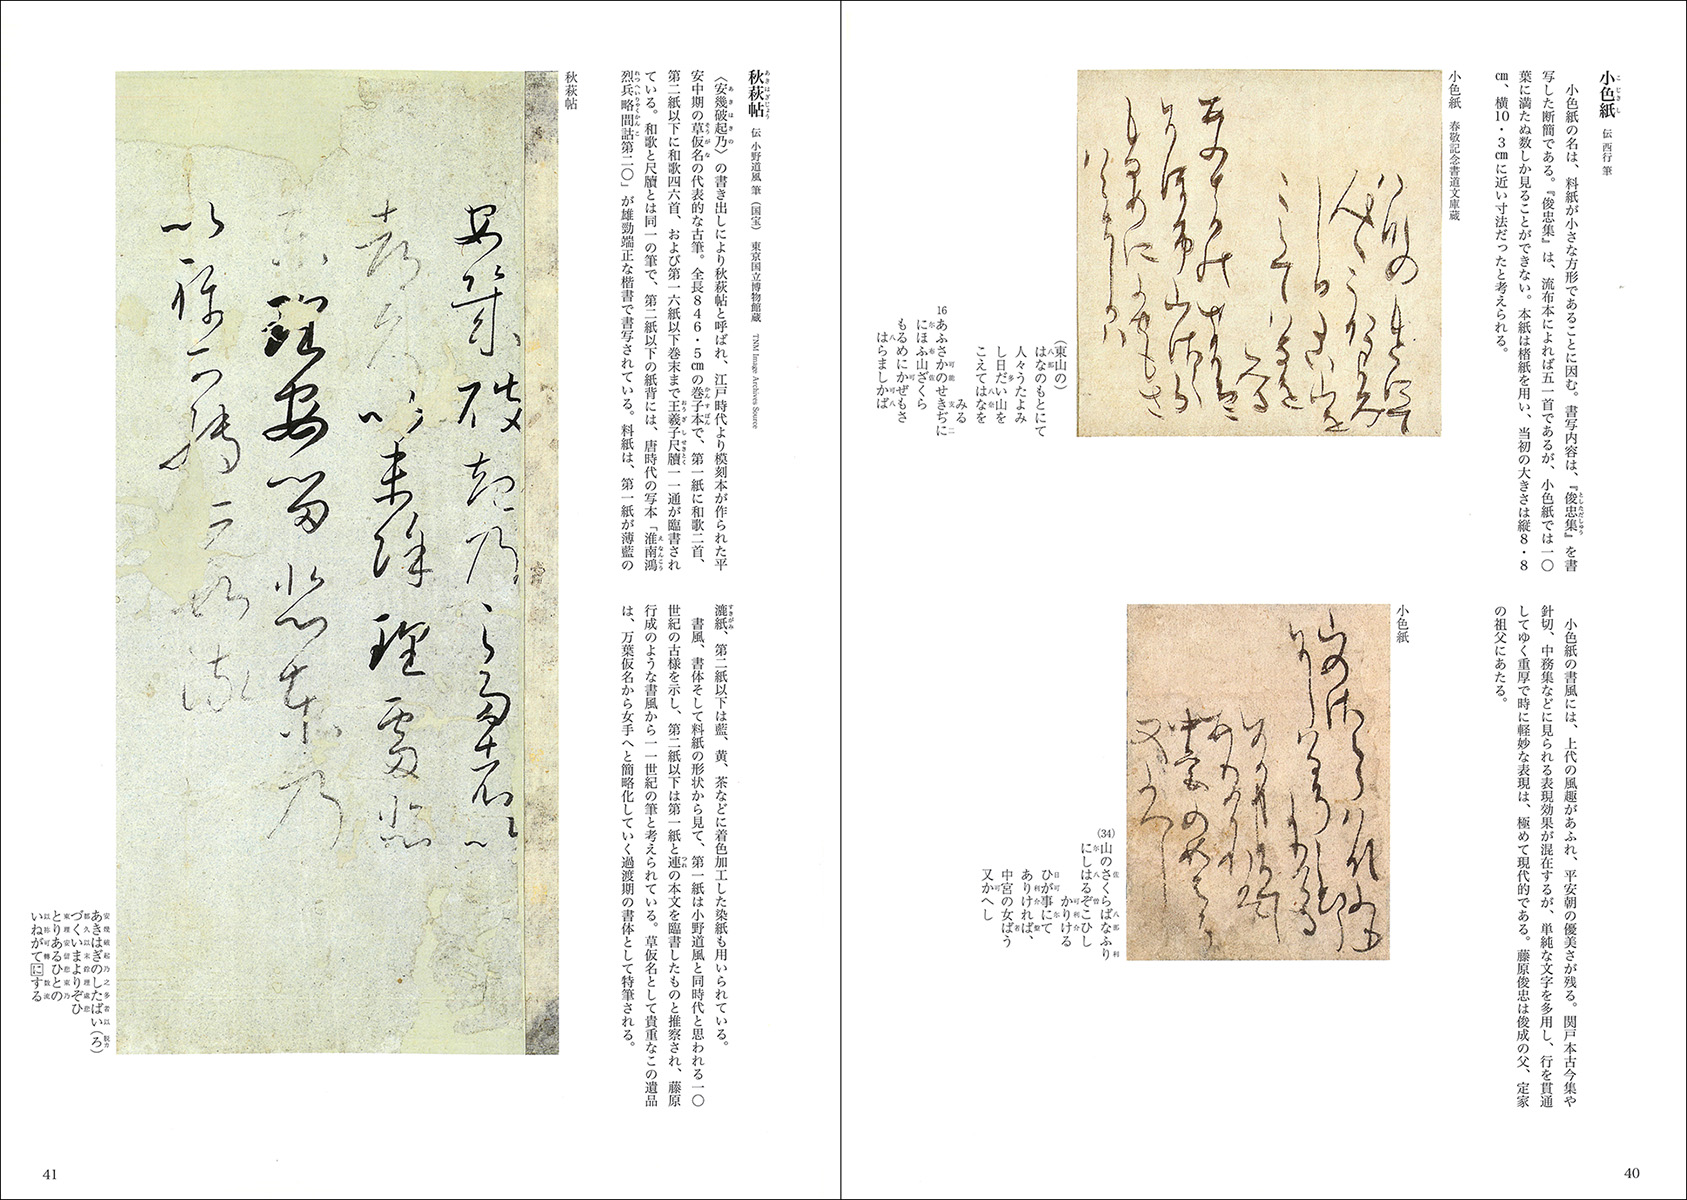 小色紙 伝 西行 筆
こじきし
小色紙の名は、料紙が小さな方形であることに因む。書写内容は、『俊忠集』を書
としただしゅう
写した断簡である。『俊忠集』は、流布本によれば五一首であるが、小色紙では一〇
葉に満たぬ数しか見ることができない。本紙は楮紙を用い、当初の大きさは縦8・8
cm、横10・3cmに近い寸法だったと考えられる。
小色紙 春敬記念書道文庫蔵
(東山の)
はなのもとにて
人々うたよみ
し日だい山を
こえてはなを
みる
16
あふさかのせきぢに
にほふ山ざくら
もるめにかぜもさ
はらましかば
小色紙の書風には、上代の風趣があふれ、平安朝の優美さが残る。関戸本古今集や
針切、中務集などに見られる表現効果が混在するが、単純な文字を多用し、行を貫通
してゆく重厚で時に軽妙な表現は、極めて現代的である。藤原俊忠は俊成の父、定家
の祖父にあたる。
小色紙
(34)
山のさくらばなふり
にしはるぞこひし
かりける
ひが事にて
ありければ、
中宮の女ばう
又かへし
40
秋萩帖 伝 小野道風 筆(国宝) 東京国立博物館蔵 TNM Image Archives Source
あきはぎじょう
〈安幾破起乃〉の書き出しにより秋萩帖と呼ばれ、江戸時代より模刻本が作られた平
あきはきの
安中期の草仮名の代表的な古筆。全長846・5cmの巻子本で、第一紙に和歌二首、
そうがな
かんすぼん
第二紙以下に和歌四六首、および第一六紙以下巻末まで王羲子尺牘一一通が臨書され
おうぎしせきとく
ている。和歌と尺牘とは同一の筆で、第二紙以下の紙背には、唐時代の写本「淮南鴻
えなんこう
烈兵略間詁第二〇」が雄勁端正な楷書で書写されている。料紙は、第一紙が薄藍の
れつへいりゃくかんこ
漉紙、第二紙以下は藍、黄、茶などに着色加工した染紙も用いられている。
すきがみ
書風、書体そして料紙の形状から見て、第一紙は小野道風と同時代と思われる一〇
世紀の古様を示し、第二紙以下は第一紙と連の本文を臨書したものと推察され、藤原
つれ
行成のような書風から一一世紀の筆と考えられている。草仮名として貴重なこの遺品
は、万葉仮名から女手へと簡略化していく過渡期の書体として特筆される。
秋萩帖
安幾破起乃之多者以
あきはぎのしたばい(ろ)
脱カ
都久以末餘理處悲
づくいまよりぞひ
東理安留悲東乃
とりあるひとの
以祢可轉数流
いねがてにする
41